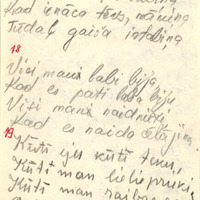 Kad ienāca tēvs, māmiņa
Tūdaļ gaiša istabiņa
18
Visi mani labi bija,
Kad es pati laba biju
Visi mani naidnieki,
Kad es naida cēlājiņa.
19
Kūti eju kūti teku,
Kūti man lieli
Kūti man raibas